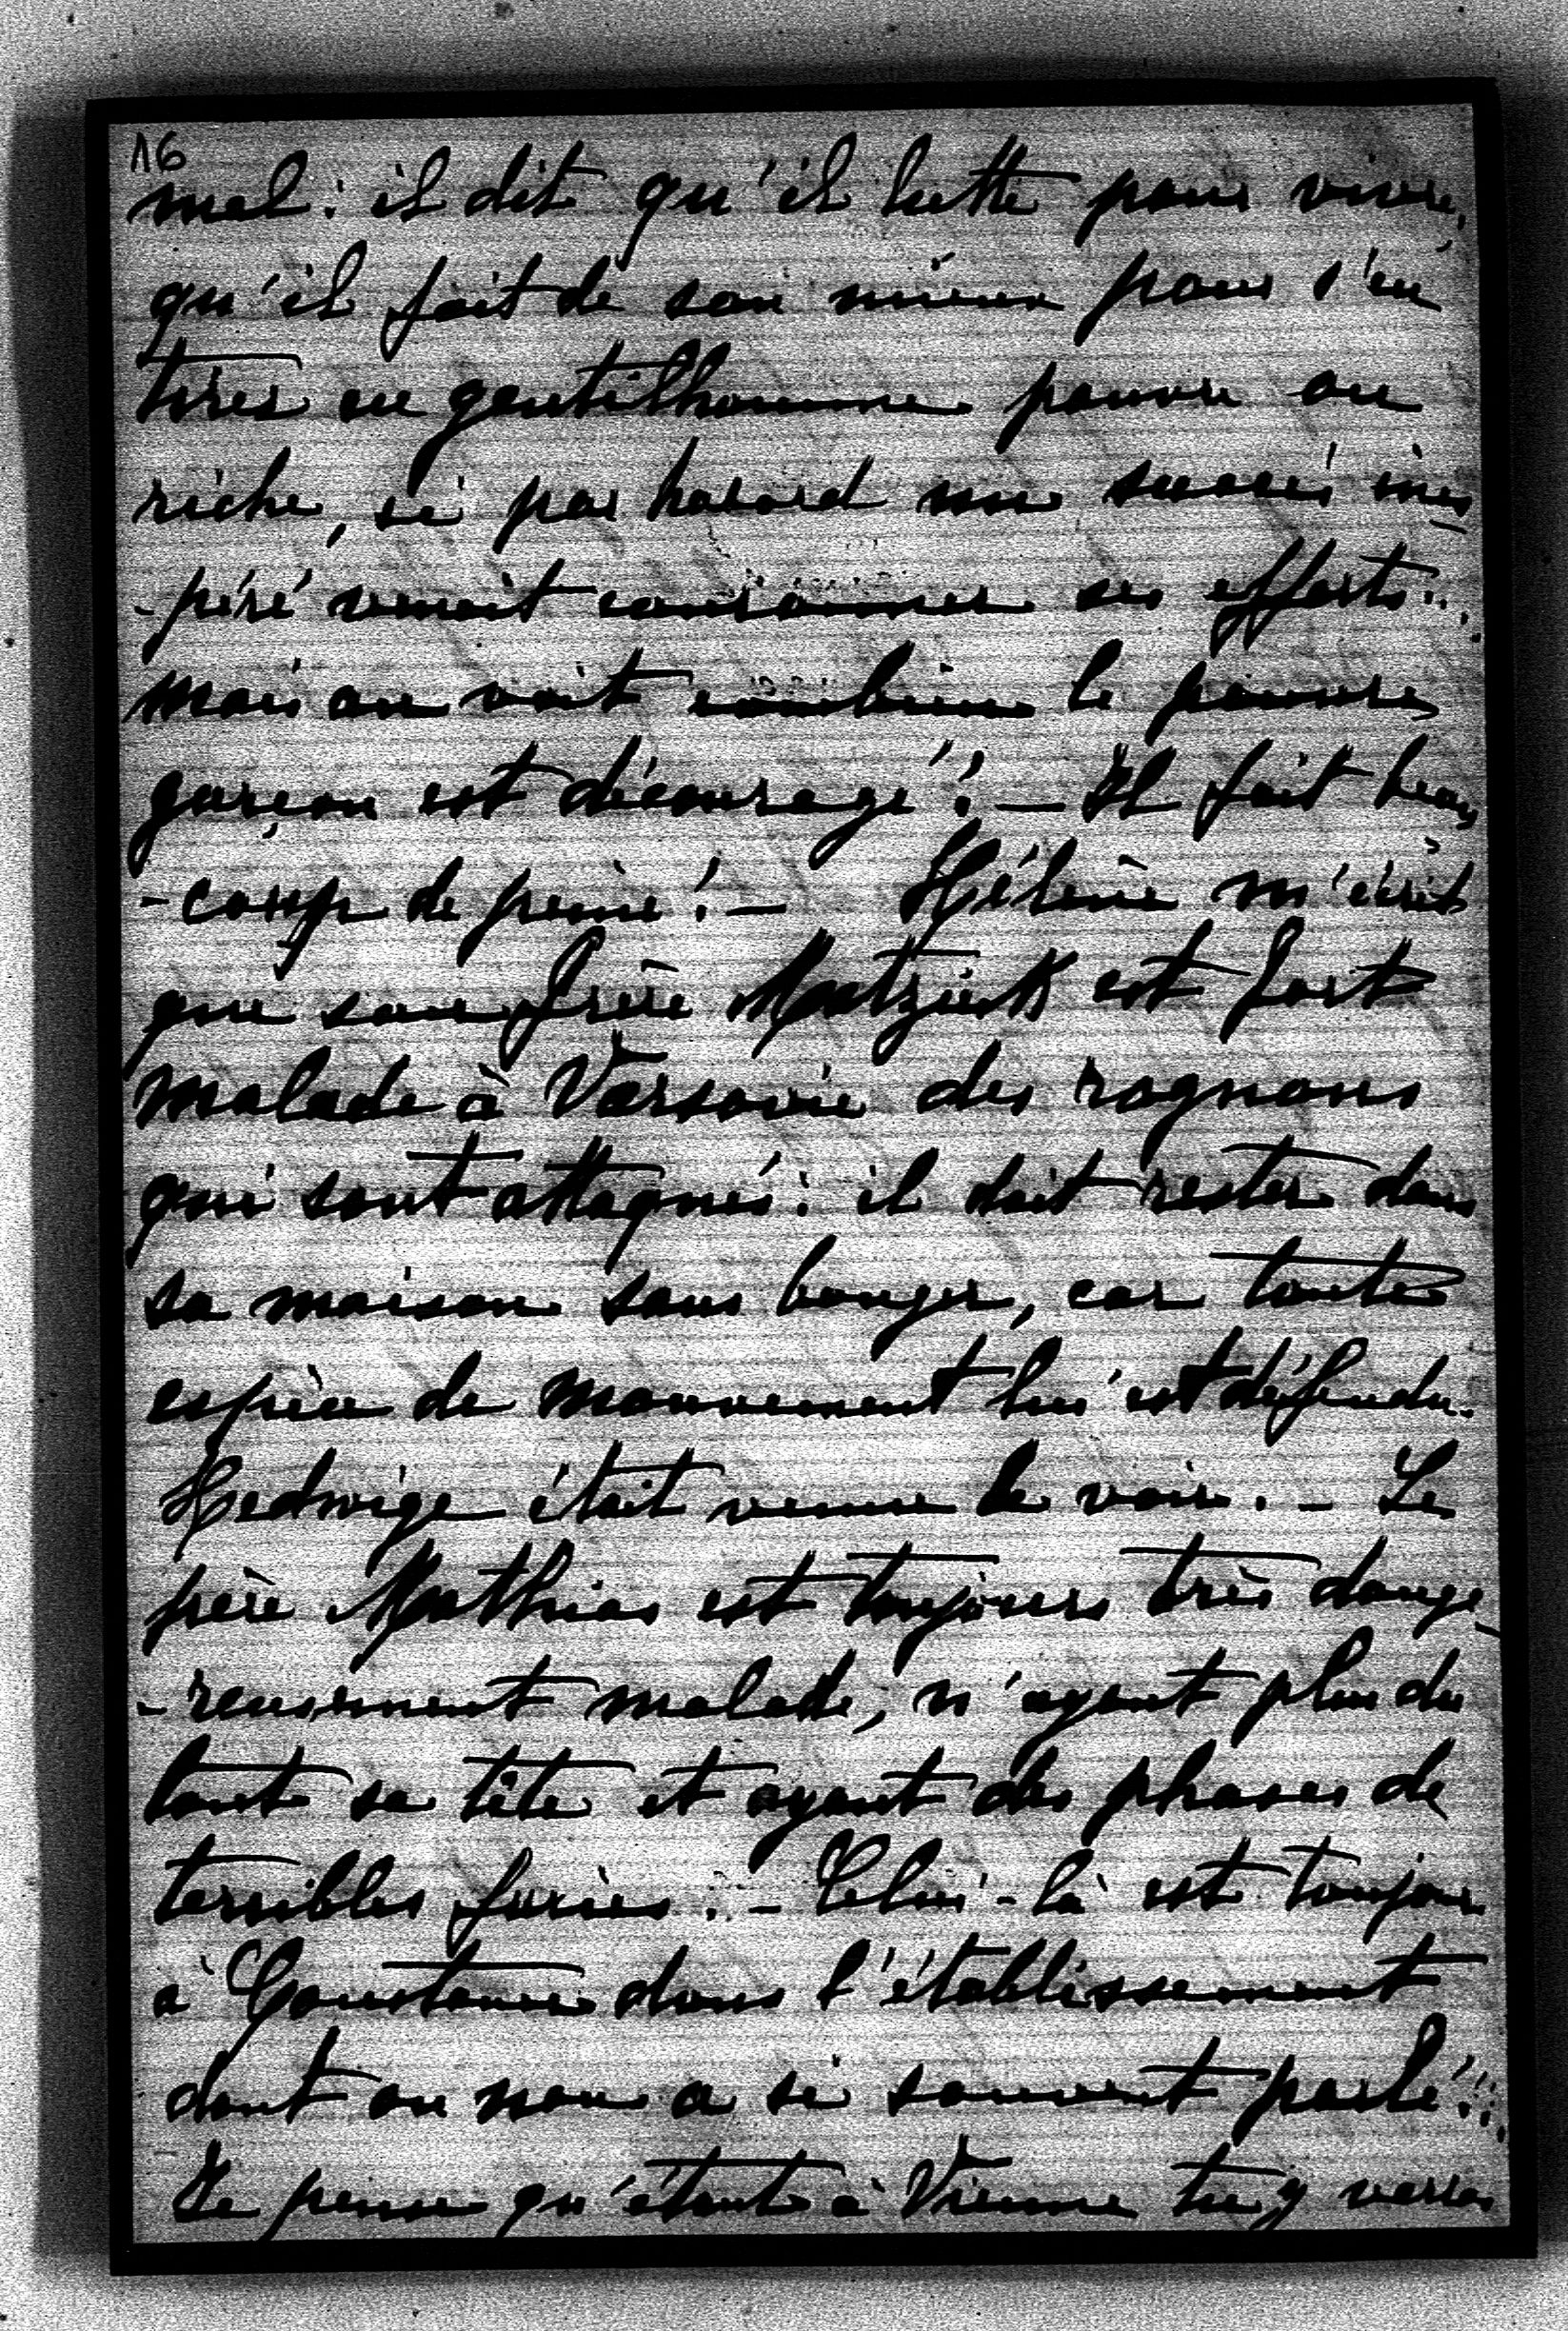 16
mal: il dit qu'il lutte pour vivre,
qu'il fait de son mieux pour s'en
tirer en gentilhomme pauvre ou
riche, si par hasard un succès ines
-péré venait couronner ses efforts...
mais on voit combien le pauvre
garçon est découragé! – Il fait beau
-coup de peine! – Hélène m'écrit
que son frère Matzieck est fort
malade à Varsovie des rognons
qui sont attaqués: il doit rester dans
sa maison sans bouger, car toute
espèce de mouvement lui est défendu.
Hedwige était venue le voir. – Le
père Mathias est toujours très dange
-reusement malade, n'ayant plus du
tout sa tête et ayant des phases de
terribles furies. – Celui-là est toujours
à Constance dans l'établissement
dont on nous a si souvent parlé!!
Je pense qu'étant à Vienne tu y verras